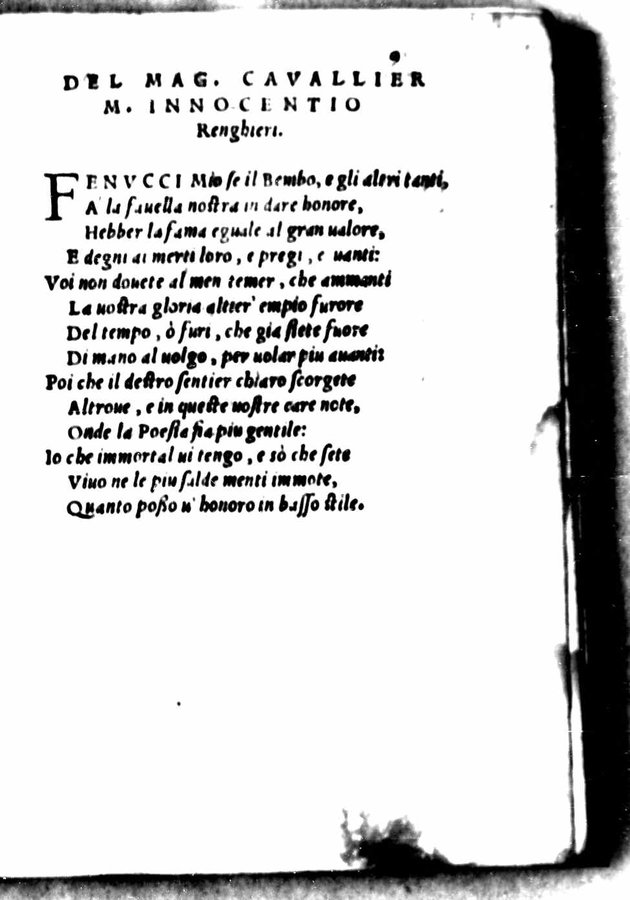 DEL MAG. CAVALLIER
M. INNOCENTIO
Renghieri.
FENVCCI Mio se il Bembo, e gli altri tanti,
A' la fauella nostra in dare honore,
Hebber la fama eguale al gran ualore,
E degni ai merti loro, e pregi, e uanti:
Voi non douete al men temer, che ammanti
La uostra gloria altier' empio furore
Del tempo, ò furi, che gia siete fuore
Di mano al uolgo, per uolar piu auanti:
Poi che il destro sentier chiaro scorgete
Altroue, e in queste uostre care note,
Onde la Poesia fia piu gentile:
Io che immortal ui tengo, e sò che sete
Viuo ne le piu salde menti immote,
Quanto posso u' honoro in basso stile.